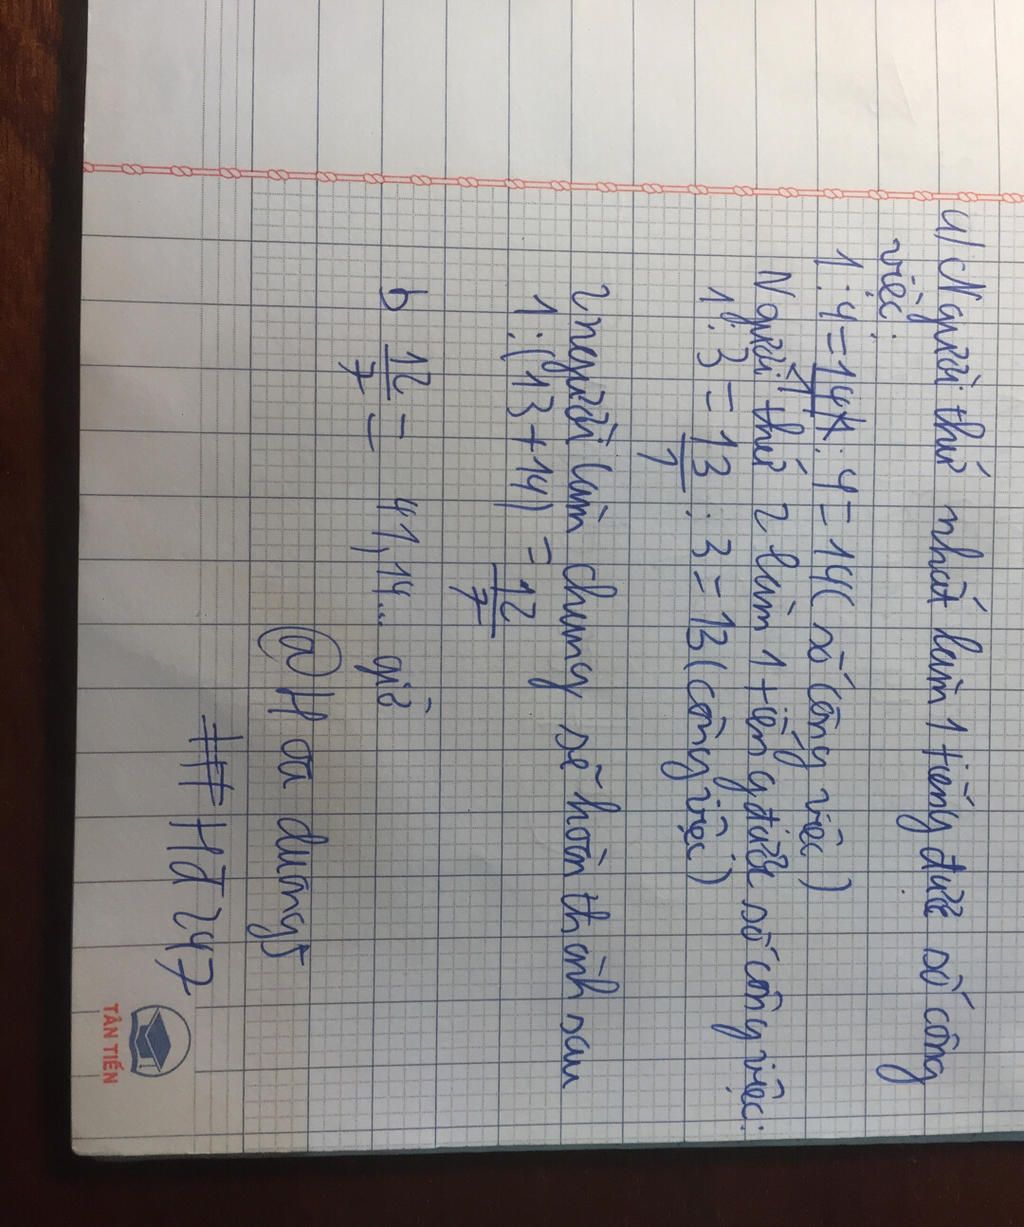 4/ Người thứ nhất làm 1 tiếng được số công
việc:
1:4=14 1:4=14( số công việc)
Người thứ 2 làm 1 tiếng được số công việc:
1:3=13 1:3=13(công việc)
2 người làm chung sẽ hoàn thành sau
1:(13+14)=12/7
b 12/7= 41,14... giờ
@Hoa duong5
#Hđ247
TÂN TIẾN